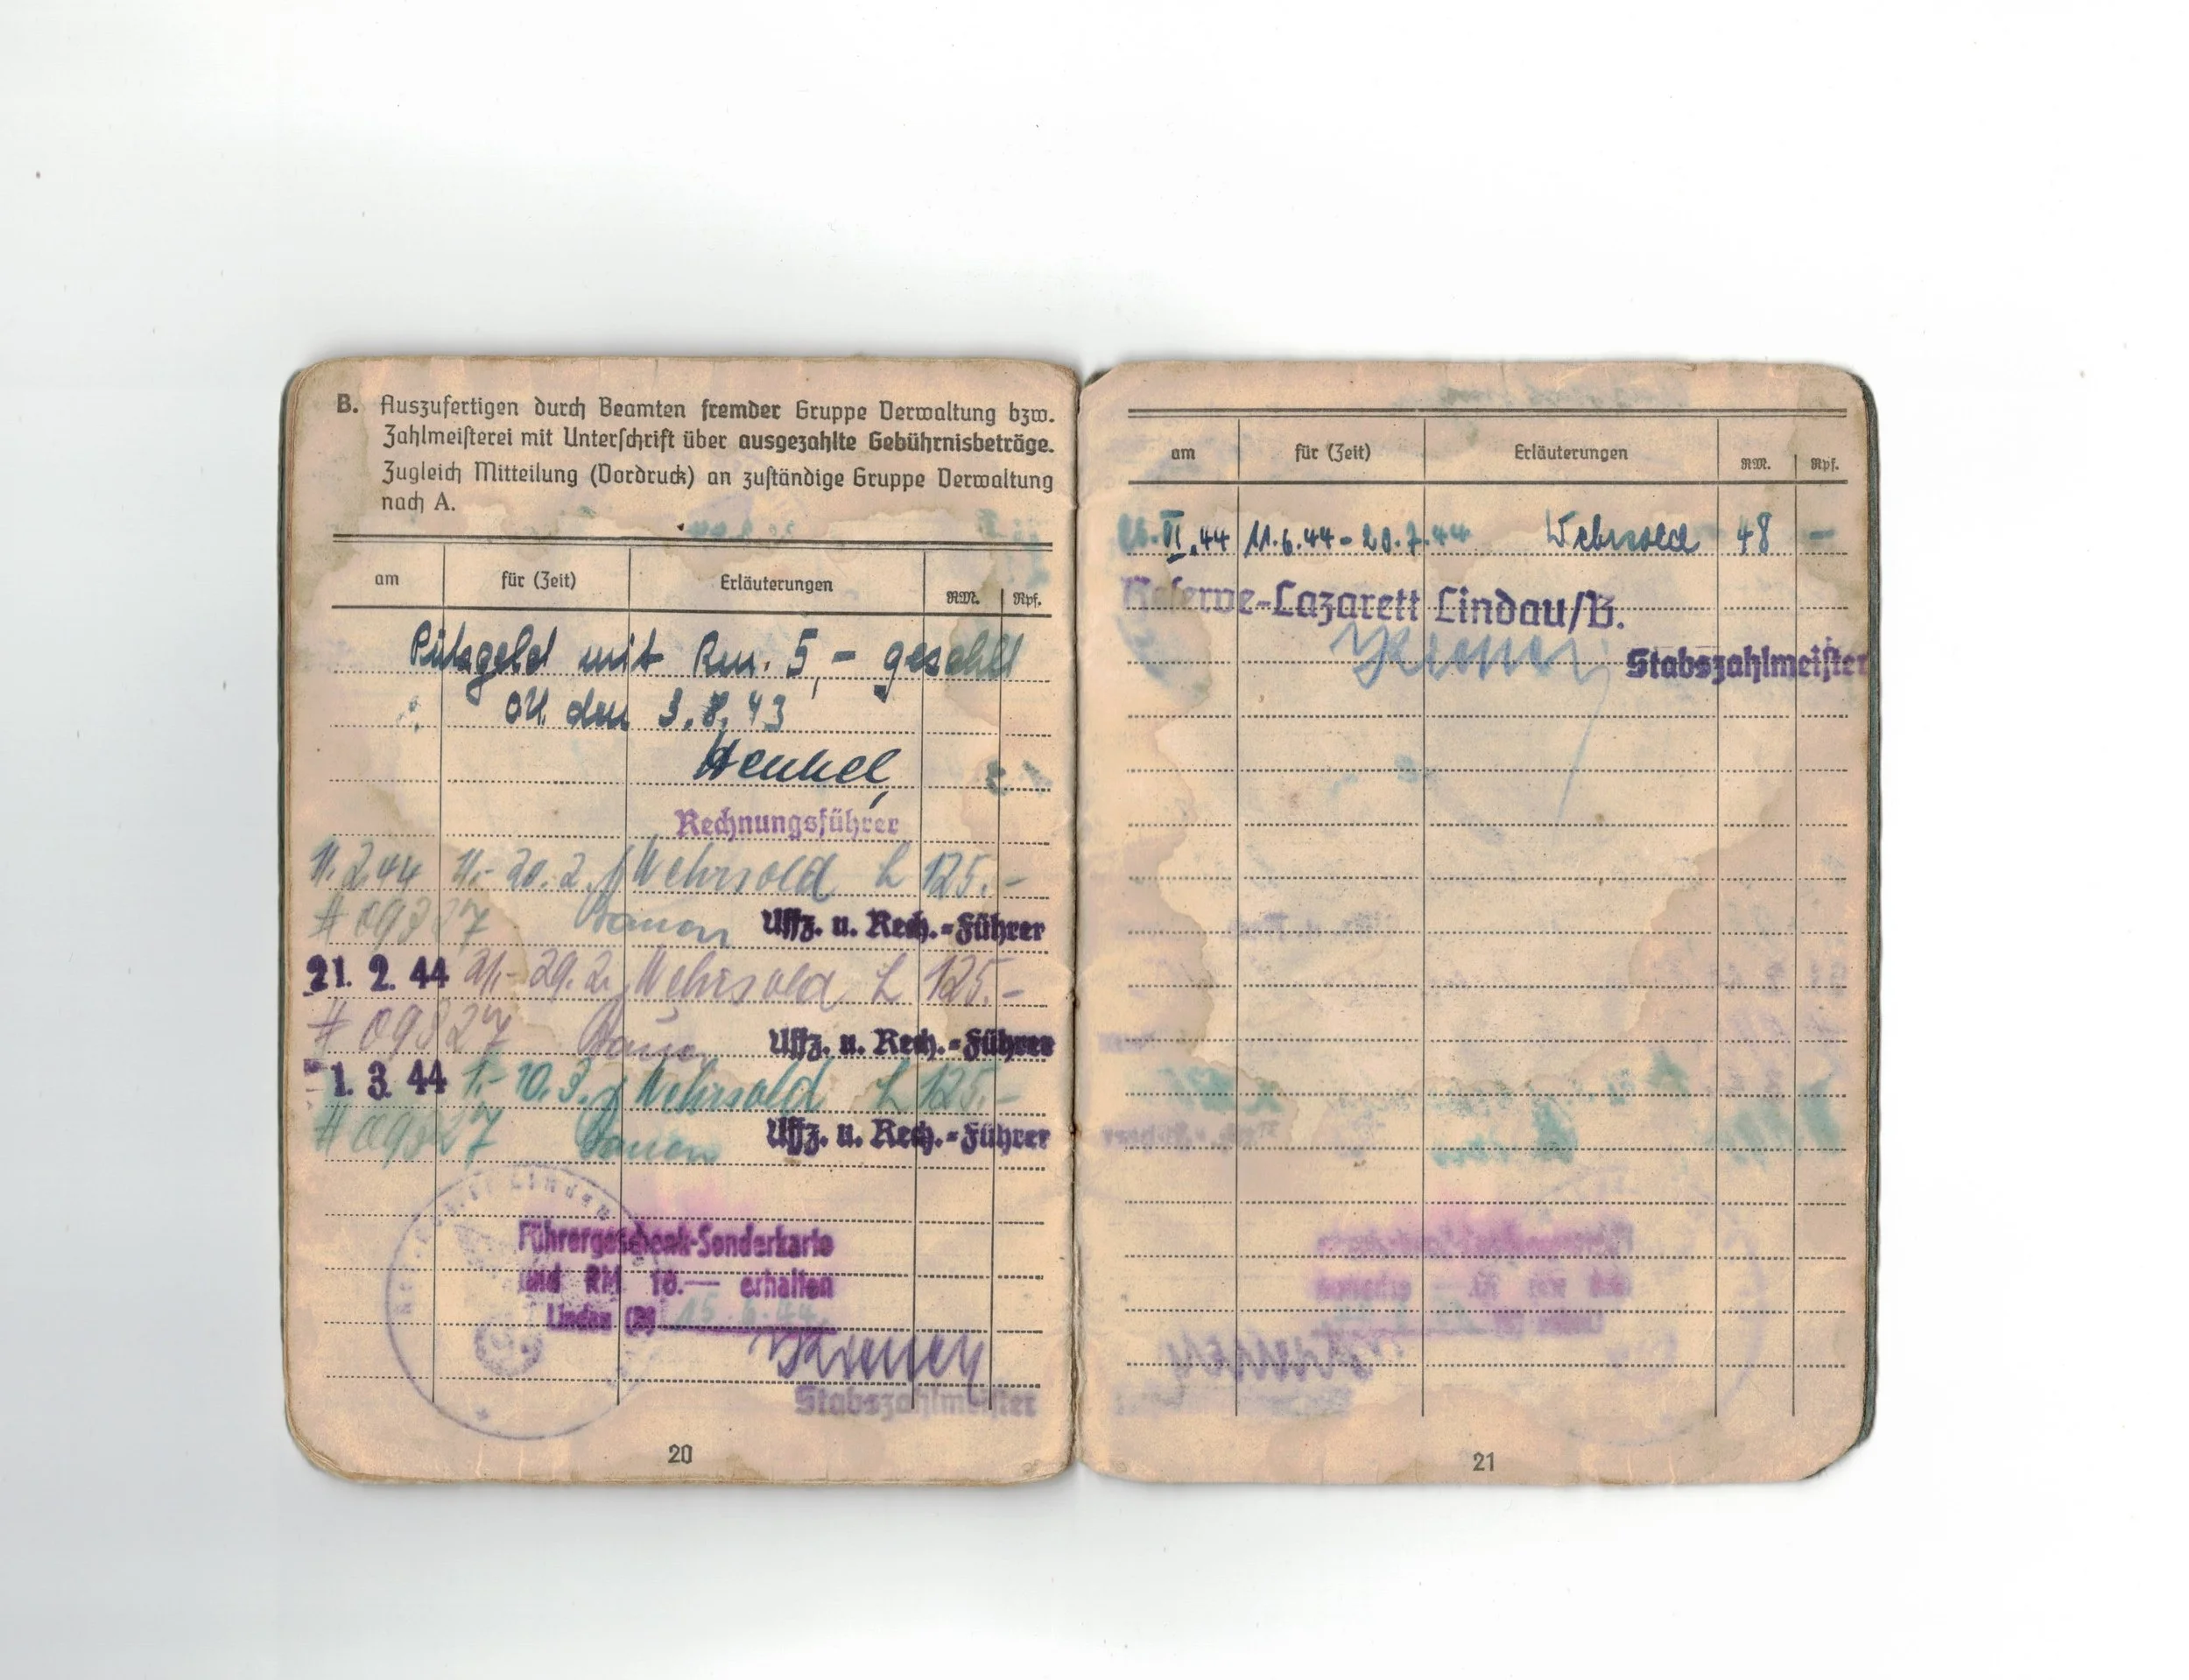 B. Auszufertigen durch Beamten fremder Gruppe Verwaltung bzw.
Zahlmeisterei mit Unterschrift über ausgezahlte Gebührnisbeträge.
Zugleich Mitteilung (Vordruck) an zuständige Gruppe Verwaltung
nach A.
am für (Zeit) Erläuterungen RM. Rpf.
Putzgeld mit Rm. 5,- gezahlt
OU. den 3.8.43
Henkel
Rechnungsführer
11.2.44 11.- 20.2. Wehrsold L 125.-
# 09327 Uffz. u. Rech.-Führer
21. 2. 44 21.- 29.2. Wehrsold L 125.-
# 09327 Uffz. u. Rech.-Führer
1. 3. 44 1.- 10.3. Wehrsold L 125.-
# 09327 Uffz. u. Rech.-Führer
Führergeschenk-Sonderkarte
und RM 10.— erhalten
Lindau (B) 15.6.44
Stabszahlmeister
20
am für (Zeit) Erläuterungen RM. Rpf.
VI.44 11.6.44 - 20.7.44 Wehrsold 48 -
Reserve-Lazarett Lindau/B.
Stabszahlmeister
21